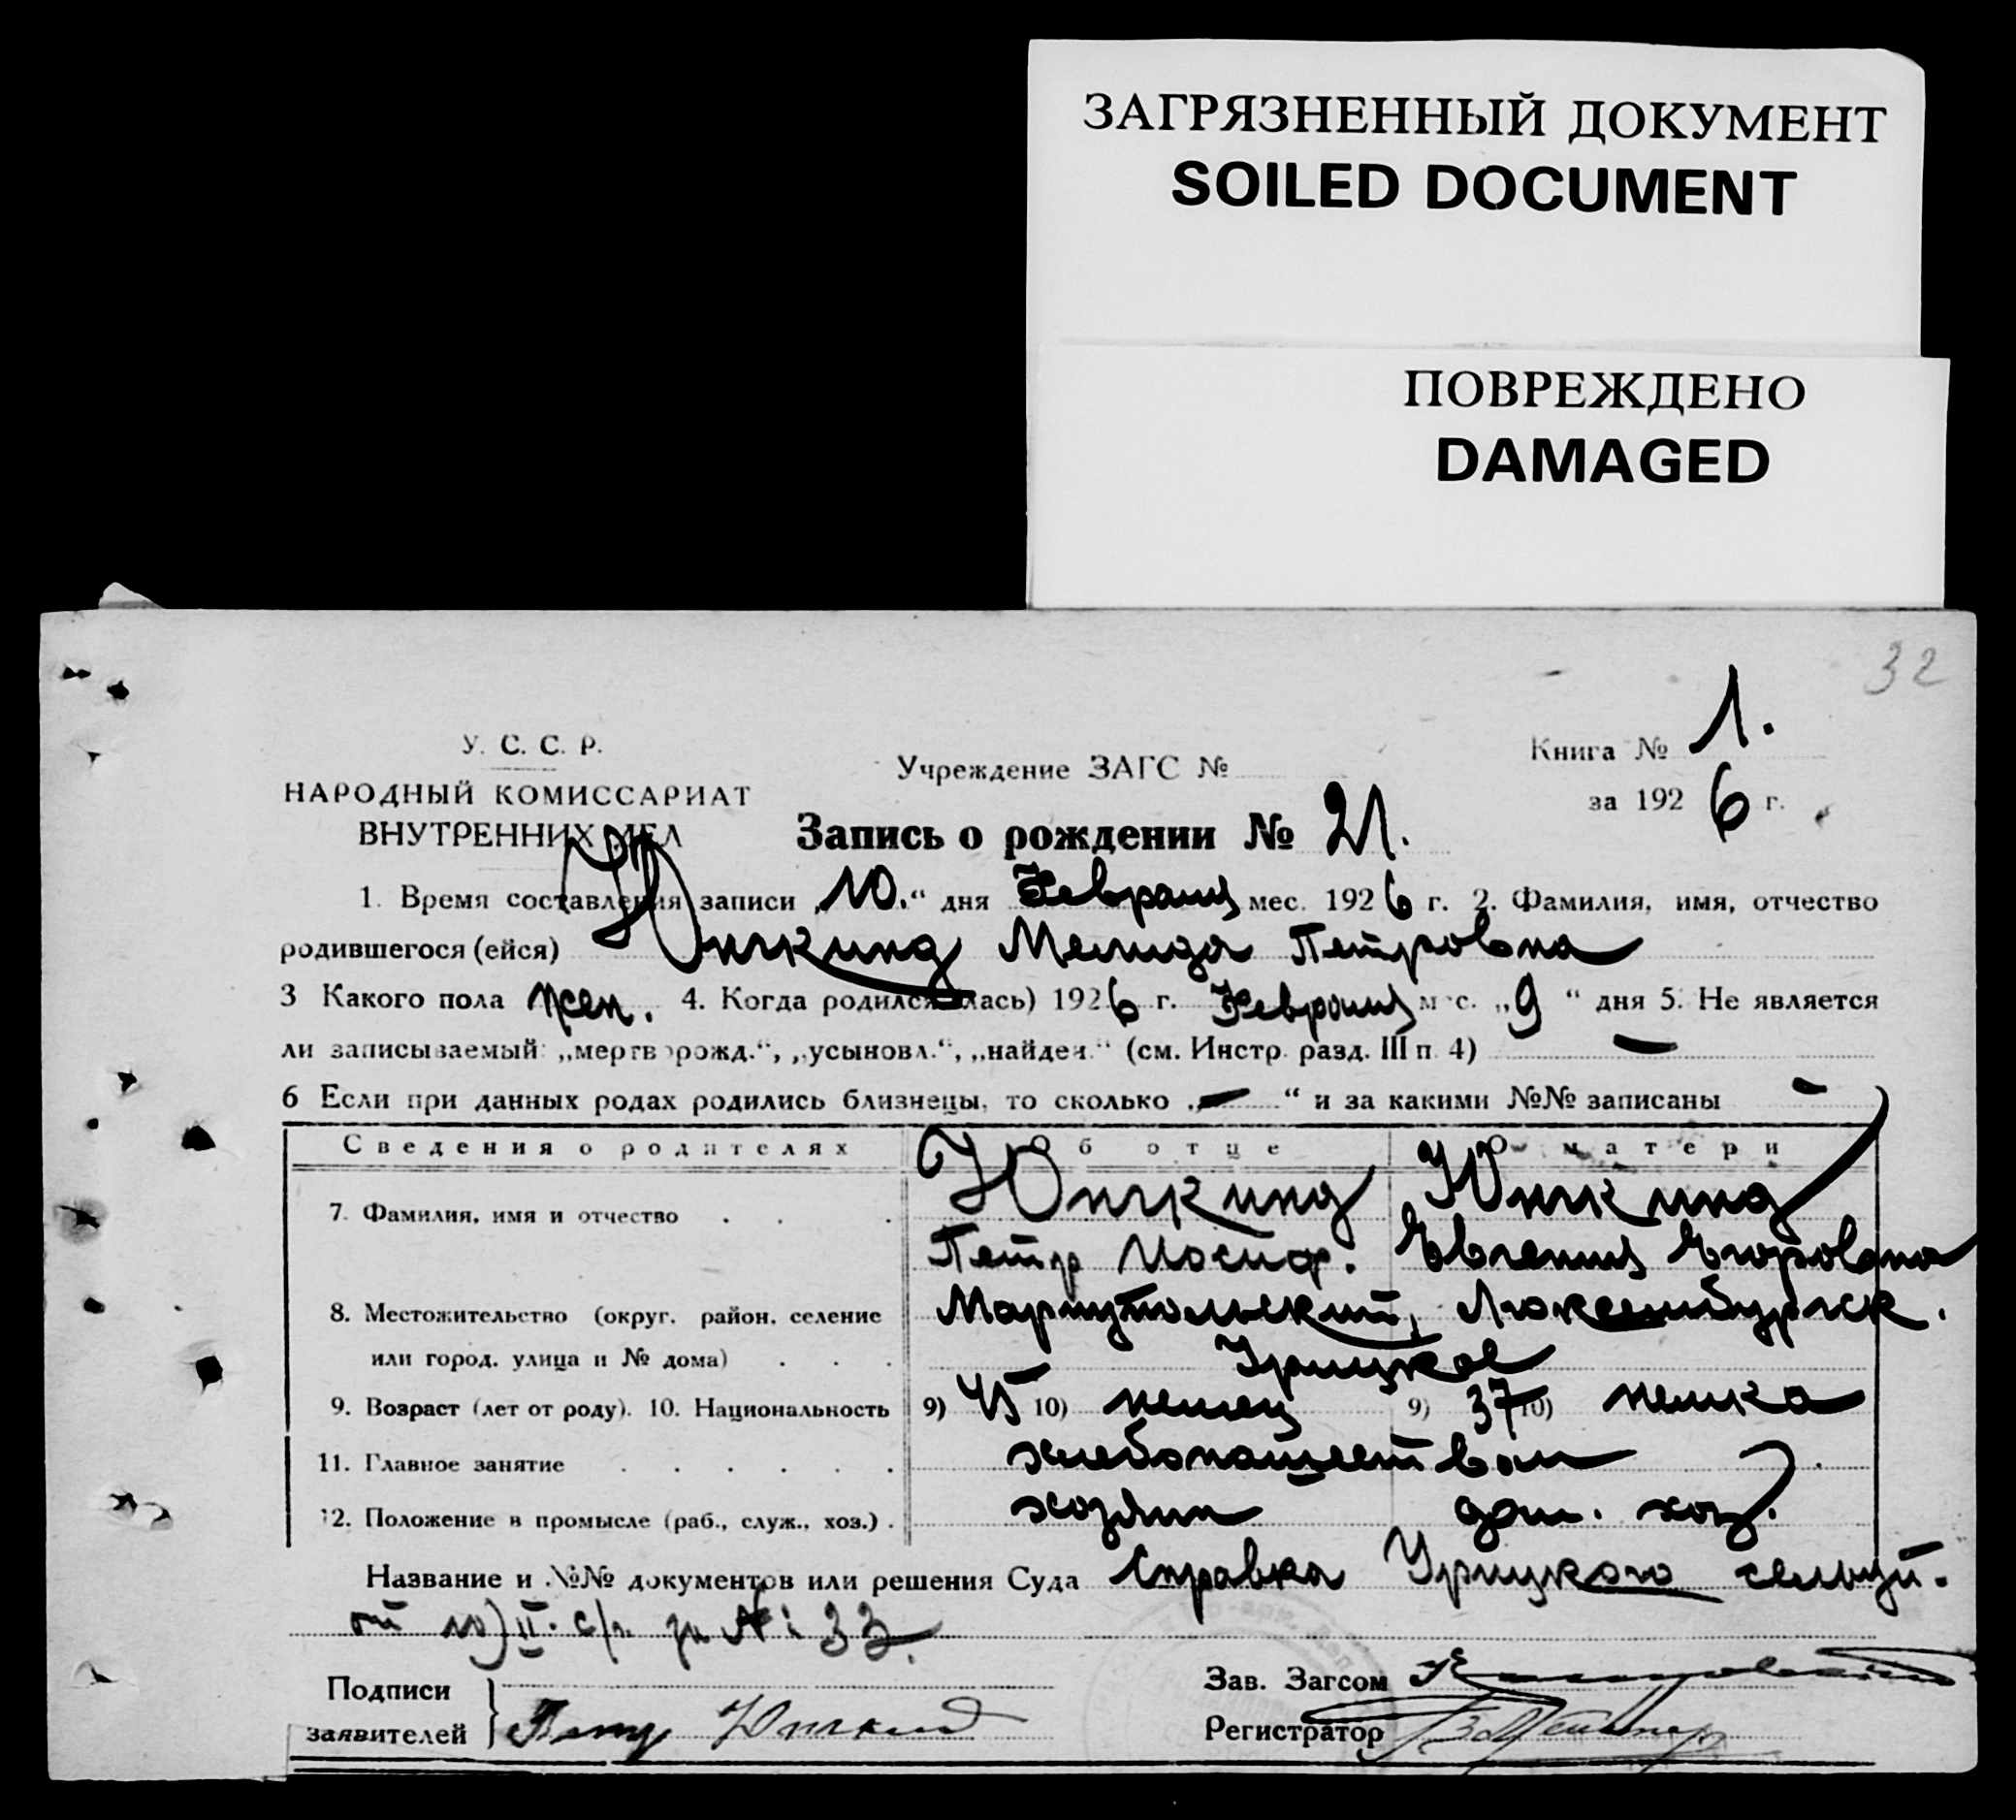 ЗАГРЯЗНЕННЫЙ ДОКУМЕНТ
SOILED DOCUMENT
ПОВРЕЖДЕНО
DAMAGED
32
У. С. С. Р.
НАРОДНЫЙ КОМИССАРИАТ
ВНУТРЕННИХ ДЕЛ
Учреждение ЗАГС №
Книга № 1.
за 1926 г.
Запись о рождении № 21.
1. Время составления записи „10.“ дня Февраля мес. 1926 г. 2. Фамилия, имя, отчество
родившегося (ейся) Юнкинд Мелида Петровна
3 Какого пола жен. 4. Когда родился (лась) 1926 г. Февраля мес. „9“ дня 5. Не является
ли записываемый: „мертворожд.“, „усыновл.“, „найден.“ (см. Инстр. разд. III п. 4) —
6 Если при данных родах родились близнецы, то сколько „—“ и за какими №№ записаны -
Сведения о родителях Об отце О матери
7. Фамилия, имя и отчество Юнкинд Юнкинд
Петр Иосиф. Евгения Егоровна
8. Местожительство (округ, район, селение Мариупольский, Люксембургск.
или город, улица и № дома) Урицкое
9. Возраст (лет от роду). 10. Национальность 9) 45 10) немец 9) 37 10) немка
11. Главное занятие хлебопашеством
12. Положение в промысле (раб., служ., хоз.) хозяин дом. хоз.
Название и №№ документов или решения Суда Справка Урицкого
от 10/II с/г. за № 33.
Подписи заявителей
Зав. Загсом
Регистратор